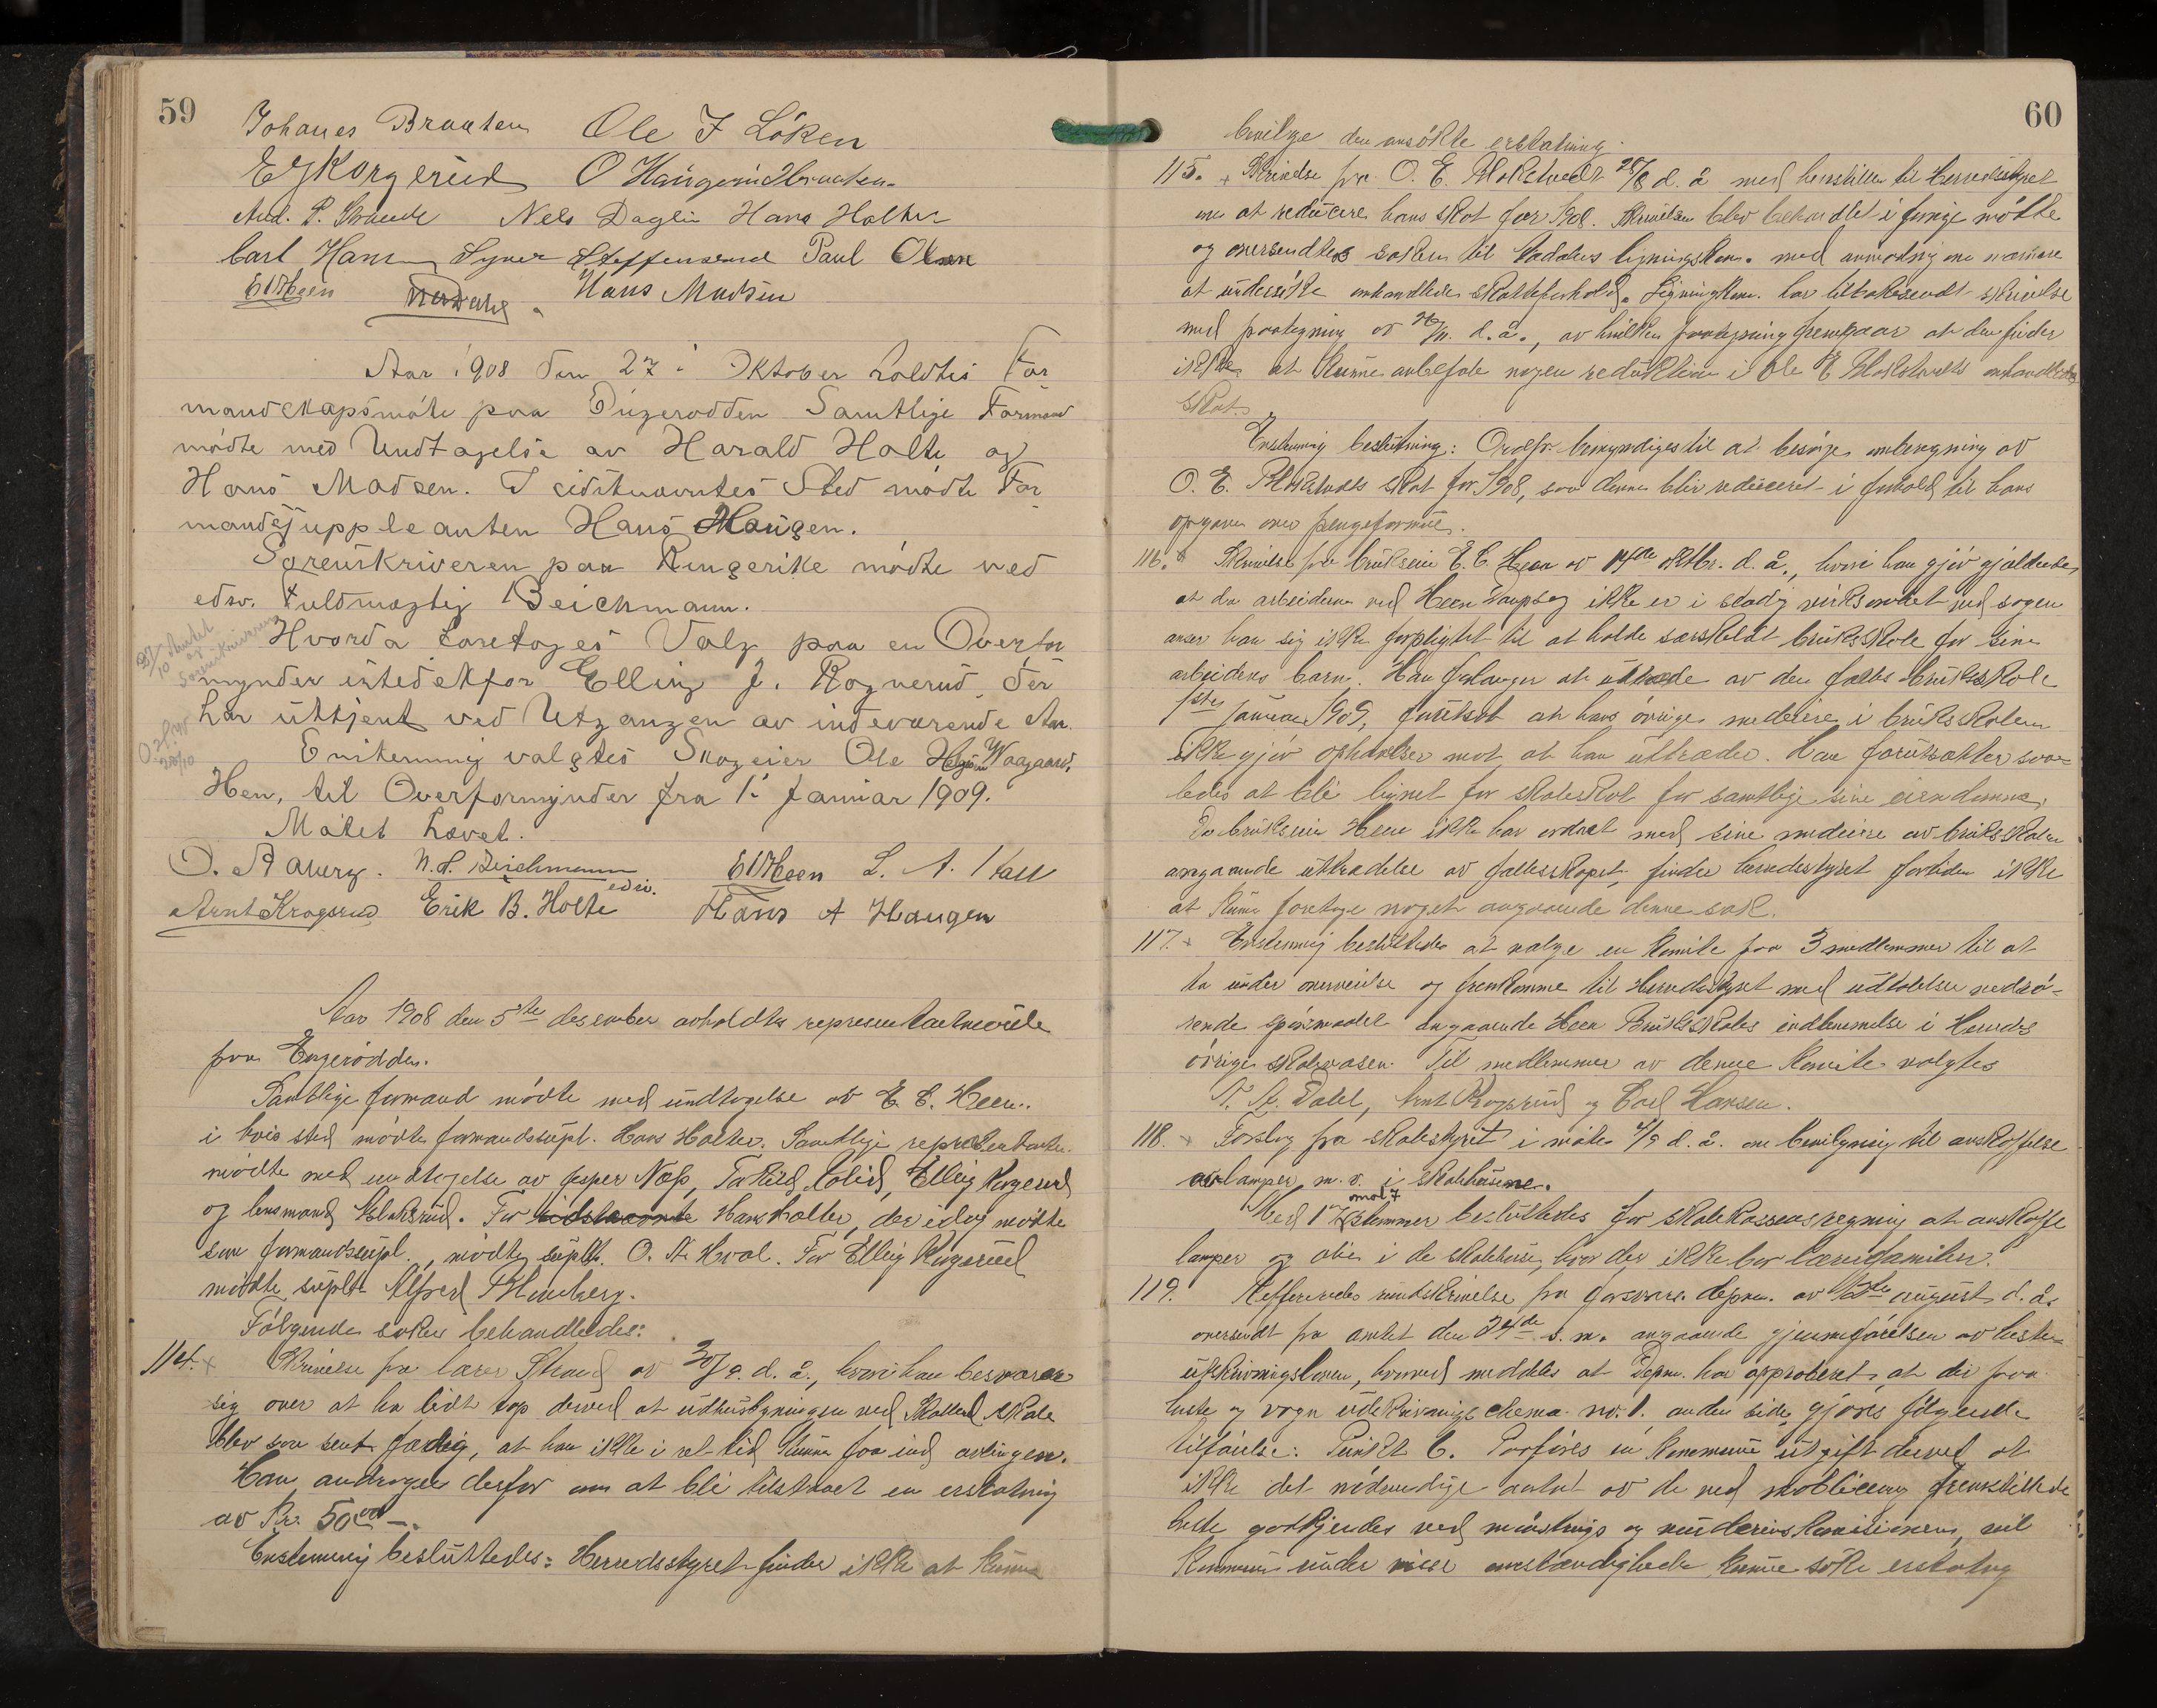 59
Johanes Braaten Ole J Löken
E Skorgerud O Haugerudbraaten
And. P. Strande Nels Daglin Hans Holter
Carl Hansen Syver Steffensrud Paul Olsen
E C Heen Hans Madsen
Aar 1908 den 27de Oktober holdtes For
mandskapsmöte paa Ringerodden Samtlige Formænd
mödte med Undtagelse av Harald Holte og
Hans Madsen. I sidstnævntes Sted mödte For
mandssuppleanten Hans Haugen.
Sorenskriveren paa Ringerike mödte ved
edsv. Fuldmægtig Beichmann.
Hvorda foretoges Valg paa en Overfor
mynder istedetfor Elling J. Rognerud, der
har uttjent ved Utgangen av indeværende Aar.
Enstemmig valgtes Skogeier Ole Helgesen Waagaard,
Hen, til Overformynder fra 1ste Januar 1909.
Mötet hævet.
27/10 Amtet og Sorenskriveren
28/10
O. Aaberg. N. A. Beichmann edsv. E C Heen L. A. Hall
Arnt Kragsrud Erik B. Holte Hans A Haugen
Aar 1908 den 5te desember avholdtes representantmöte
paa Engerodden.
Samtlige formænd mödte med undtagelse av E. C. Heen..
i hvis sted mödte formandssupl. Hans Holter. Samtlige representanter
mödte med undtagelse av Jesper Næs, Torkild Lolid, Elling Korgerud
og lensmand Kloksrud. For sidstnævnte Hans Holter, der idag mödte
som formandssupl., mödte suplt. O. A. Hval. For Elling Korgerud
mödte suplt Alfred Blomberg.
Fölgende saker behandledes:
114. x Skrivelse fra lærer Strand av 30/9. d. å., hvori han besværer
sig over at ha lidt tap derved at udhusbygningen ved Skollerud Skole
blev saa sent færdig, at han ikke i ret tid kunne faa ind avlingen.
Han androger derfor om at bli tilstaaet en erstatning
av Kr. 50.00 –.
Enstemmig besluttedes: Herredsstyret finder ikke at kunne
60
bevilge den ansökte erstatning.
115. x Skrivelse fra O. E. Blokstvedt 28/8 d. å med henstillen til Herredsstyret
om at reducere hans skat for 1908. Skrivelsen blev behandlet i forrige mötte
og oversendtes saken til Aadalens ligningskom. med anmodning om nærmere
at undersöke omhandlede skatteforhold. Ligningkom. har tilbakesendt skrivelse
med paategning av d. å., av hvilken paategning fremgaar at den finder
ikke at kunne anbefale nogen reduktion i Ole E Blokstvedts omhandlede
Skat.
Enstemmig beslutning: Ordfr. bemyndiges til at besörge omberegning av
O. E. Blokstvedts skat for 1908, saa denne blir reduceret i forhold til hans
opgaver over pengeformue.
116. x Skrivelse fra brukseier E. C. Heen av 14de oktbr. d. å., hvori han gjör gjældende,
at da arbeiderne ved Heen Dampsag ikke er i stadig virksomhet ved sagen
anser han sig ikke forpligtet til at holde særskildt bruksskole for sine
arbeideres barn. Han forlanger at uttræde av den fælles bruksskole
1ste januar 1909, forutsat at hans övrige medeiere i bruksskolen
ikke gjör ophævelser mot at han uttræder. Han forutsætter saa-
ledes at bli lignet for skoleskat for samtlige sine eiendomme.
Da brukseier Heen ikke har ordnet med sine medeiere av bruksskolen
angaaende uttrædelse av fællesskapet, finder herredsstyret fortiden ikke
at kunne foretage noget angaaende denne sak.
117. x Enstemmig besluttedes at vælge en komite paa 3 medlemmer til at
ta under overveielse og fremkomme til Herredsstyret med udtalelse vedrö-
rende spörsmaalet angaaende Heen Bruksskoles indlemmelse i Herreds
övrige skolevæsen. Til medlemmer av denne komite valgtes
T. A. Dahl, Arnt Kragsrud og Carl Hansen.
118. x Forslag fra skolestyret i möte 4/9 d. å. om bevilgning til anskaffelse
av lamper m. v. i skolehusene.
Med 17 mot 7 stemmer besluttedes for skolekassens regning at anskaffe
lamper og olie i de skolehuse, hvor der ikke bor lærerfamilier.
119. Reffereredes rundskrivelse fra forsvars depem. av august d. å.
oversendt fra amtet den 24de s. m. angaaende gjennemförelsen av heste-
utskrivningsloven, hvorved meddeles at Depm. har approberet, at der paa
heste og vogn udskrivnings chema no. 1. anden side, gjöres fölgende
tilföielse: Punkt 6. Paaföres en kommune utgift derved at
ikke det nödvendige antal av de ved mobilisering fremstillede
heste godkjendes ved mönstrings og vurderings komisionen, vil
Kommunen under visse omstændigheder kunne söke erstatning